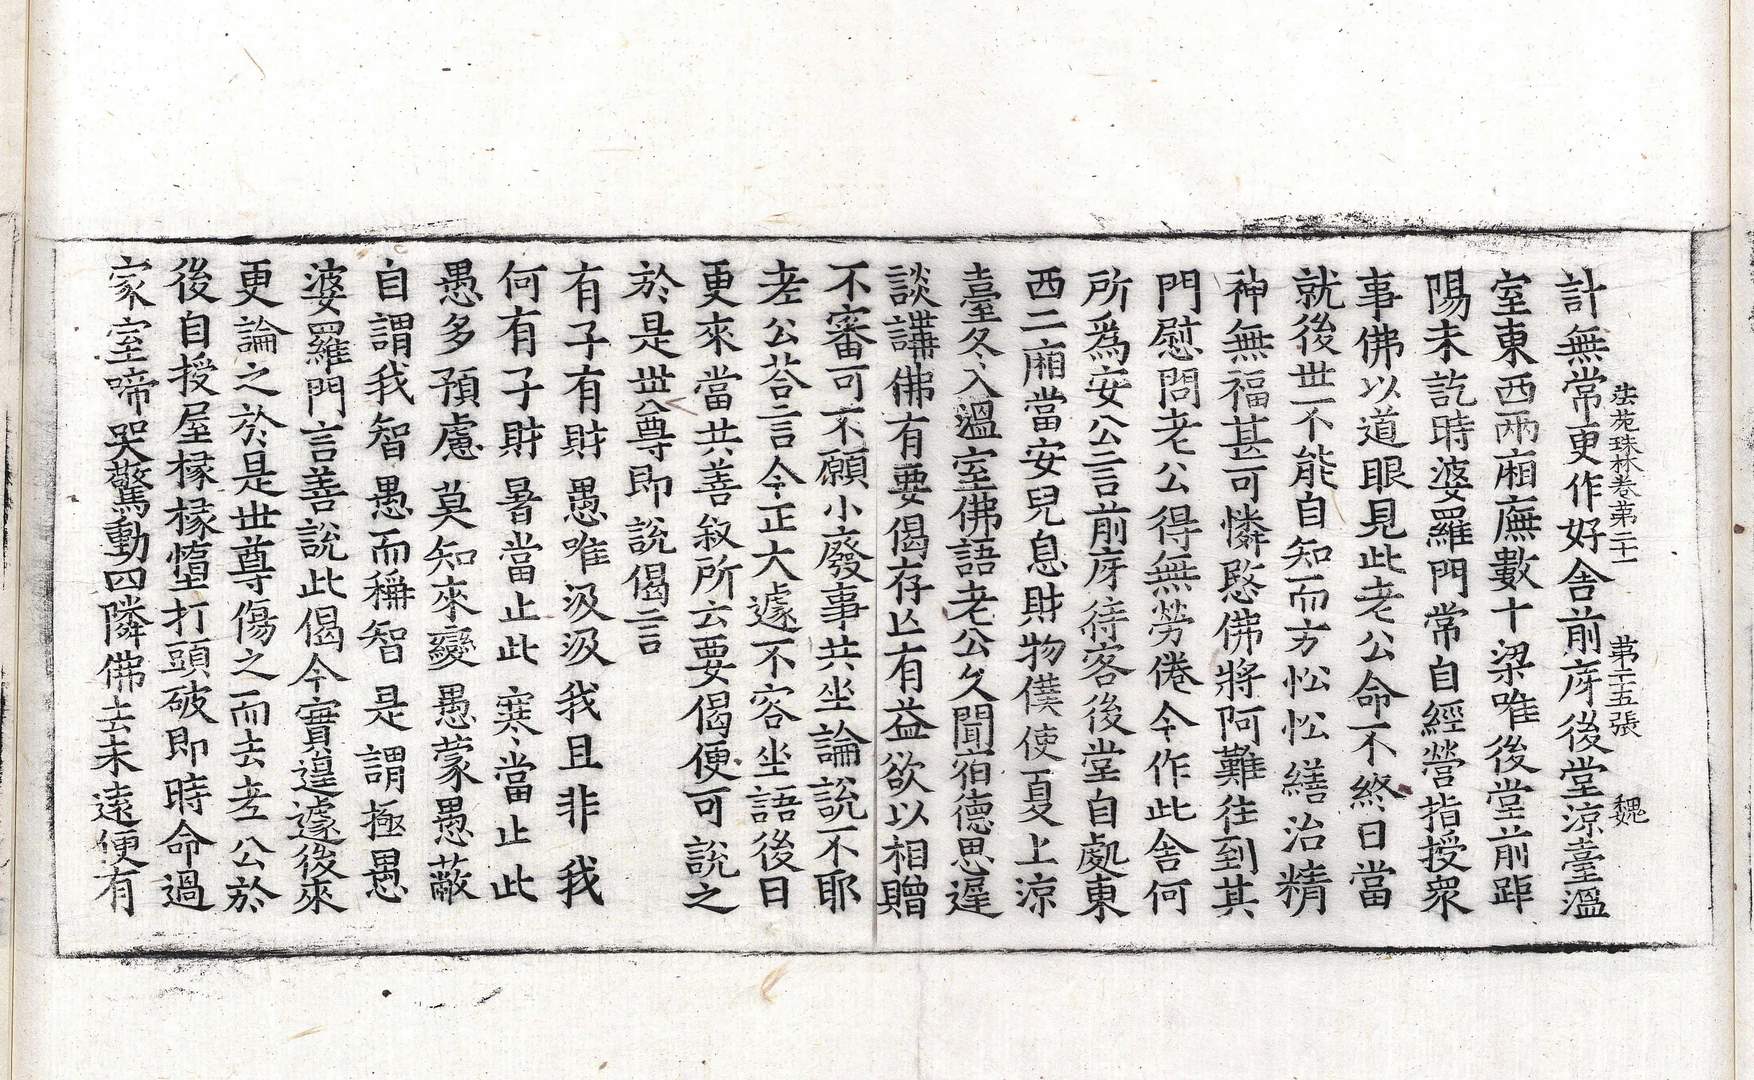 法苑珠林卷第二十一 第二十五張 魏
計無常更作好舍前庌後堂涼臺溫
室東西兩廂廡數十梁唯後堂前距
陽未訖時婆羅門常自經營指授衆
事佛以道眼見此老公命不終日當
就後世不能自知而方忪忪繕治精
神無福甚可憐愍佛將阿難往到其
門慰問老公得無勞倦今作此舍何
所爲安公言前庌待客後堂自處東
西二廂當安兒息財物僕使夏上涼
臺冬入溫室佛語老公久聞宿德思遲
談講佛有要偈存亡有益欲以相贈
不審可不願小廢事共坐論說不耶
老公荅言今正大遽不容坐語後日
更來當共善叙所云要偈便可說之
於是世尊即說偈言
有子有財 愚唯汲汲 我且非我
何有子財 暑當止此 寒當止此
愚多預慮 莫知來變 愚蒙愚蔽
自謂我智 愚而稱智 是謂極愚
婆羅門言善說此偈今實遑遽後來
更論之於是世尊傷之而去老公於
後自授屋椽椽墮打頭破即時命過
家室啼哭驚動四隣佛去未遠便有